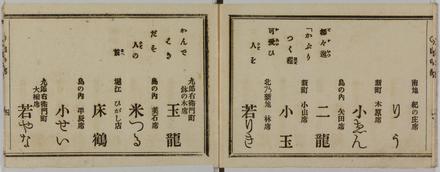 南地 紀の庄席
りう
新町 木原席
小ゑん
都々逸
「かぶり
つく程
可愛ひ
人を
島の内 矢田席
二龍
新町 小山席
小玉
北乃新地 林席
若りき
かんで
だそ
人の
九郎右衛門町
鉢の木席
玉龍
島の内 菱石席
米つる
堀江 ひがし店
床鶴
島の内 平辰席
小せい
九郎右衛門町
大梅席
若やな